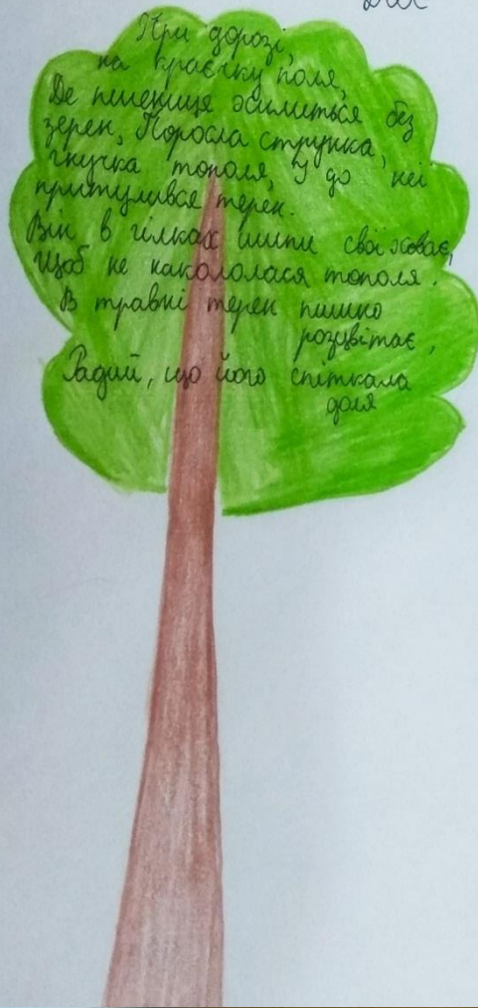 При дорозі,
на краєчку поля,
Де пшениця хилиться без
зерен, Поросла струнка,
гнучка тополя, І до неї
притулився терен.
Він в гілках шипи свої ховає,
Щоб не накололася тополя.
В травні терен пишно
розцвітає,
Радий, що його спіткала
доля